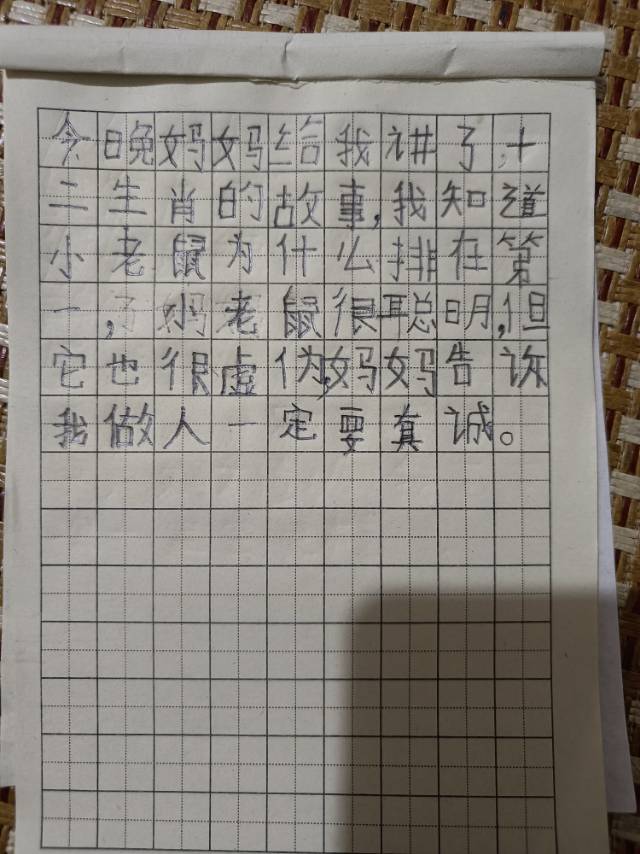 今晚妈妈给我讲了,十
二生肖的故事,我知道
小老鼠为什么排在第
一,了小老鼠很聪明,但
它也很虚伪,妈妈告诉
我做人一定要真诚。